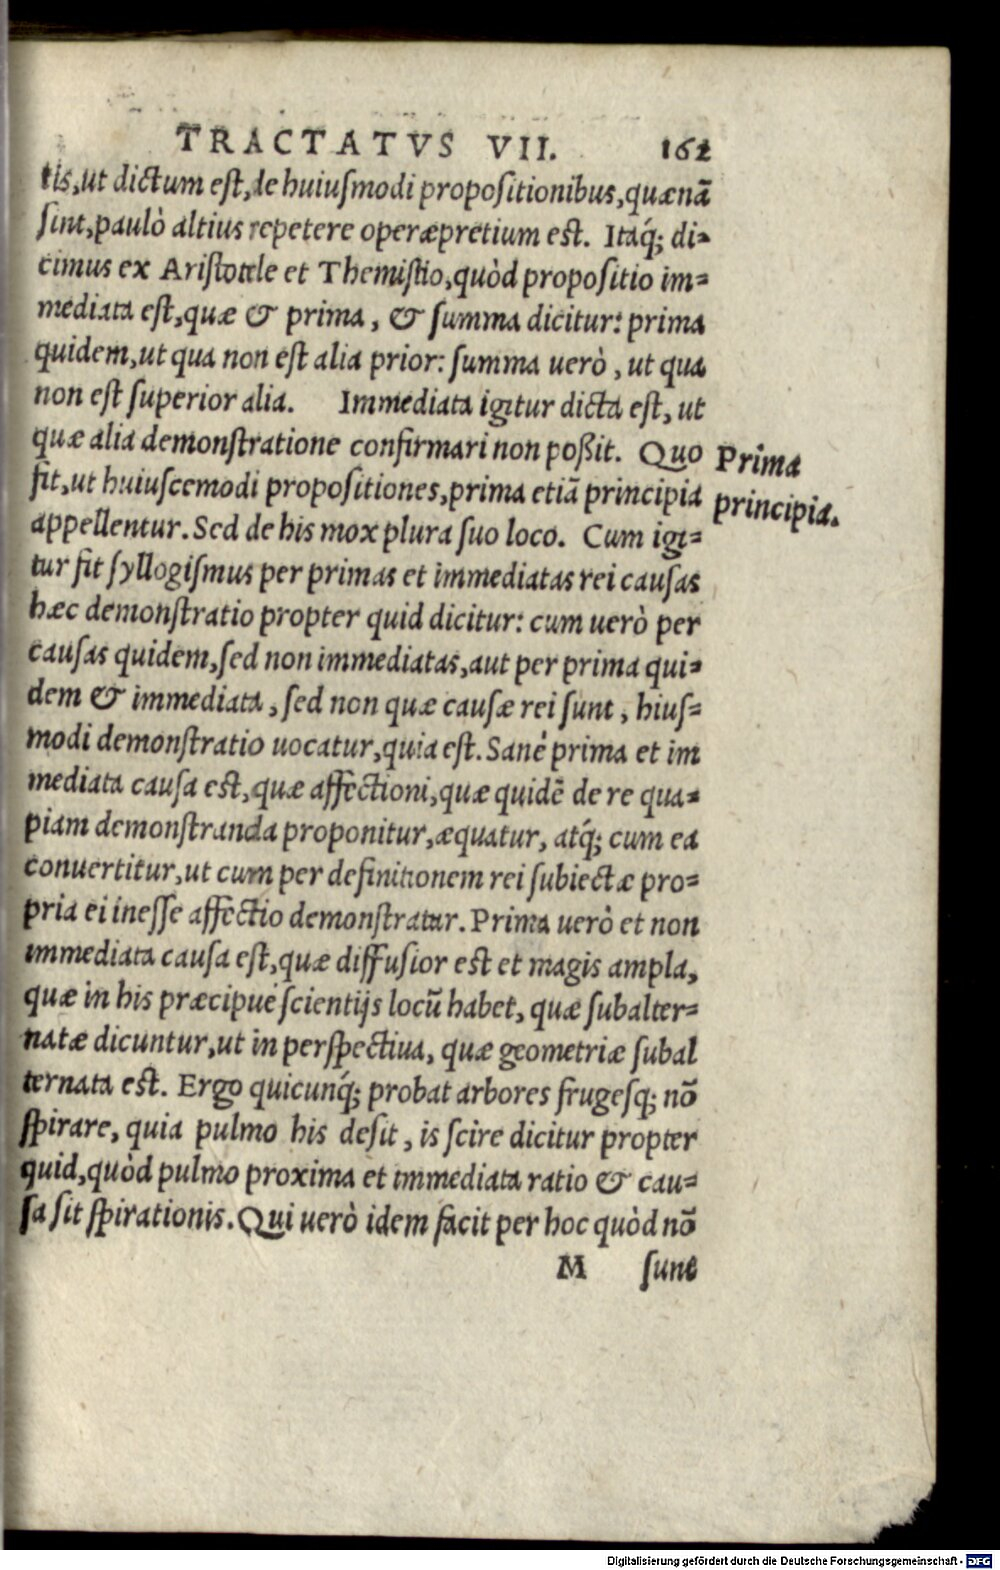 TRACTATVS VII. 161
tis, ut dictum est, de huiusmodi propositionibus, quænã
sint, paulò altius repetere operæpretium est. Itaq́; di=
cimus ex Aristotele et Themistio, quòd propositio im=
mediata est, quæ & prima, & summa dicitur: prima
quidem, ut qua non est alia prior: summa uerò, ut qua
non est superior alia. Immediata igitur dicta est, ut
quæ alia demonstratione confirmari non poßit. Quo
Prima
fit, ut huiuscemodi propositiones, prima etiã principia
principia.
appellentur. Sed de his mox plura suo loco. Cum igi=
tur fit syllogismus per primas et immediatas rei causas
hæc demonstratio propter quid dicitur: cum uerò per
causas quidem, sed non immediatas, aut per prima qui=
dem & immediata, sed non quæ causæ rei sunt, hius=
modi demonstratio uocatur, quia est. Sanè prima et im
mediata causa est, quæ affectioni, quæ quidẽ de re qua=
piam demonstranda proponitur, æquatur, atq́; cum ea
conuertitur, ut cum per definitionem rei subiectæ pro=
pria ei inesse affectio demonstratur. Prima uerò et non
immediata causa est, quæ diffusior est et magis ampla,
quæ in his præcipuè scientijs locũ habet, quæ subalter=
natæ dicuntur, ut in perspectiua, quæ geometriæ subal
ternata est. Ergo quicunq́; probat arbores frugesq; nõ
spirare, quia pulmo his desit, is scire dicitur propter
quid, quòd pulmo proxima et immediata ratio & cau=
sa sit spirationis. Qui uerò idem facit per hoc quòd nõ
M sunt
Digitalisierung gefördert durch die Deutsche Forschungsgemeinschaft - DFG